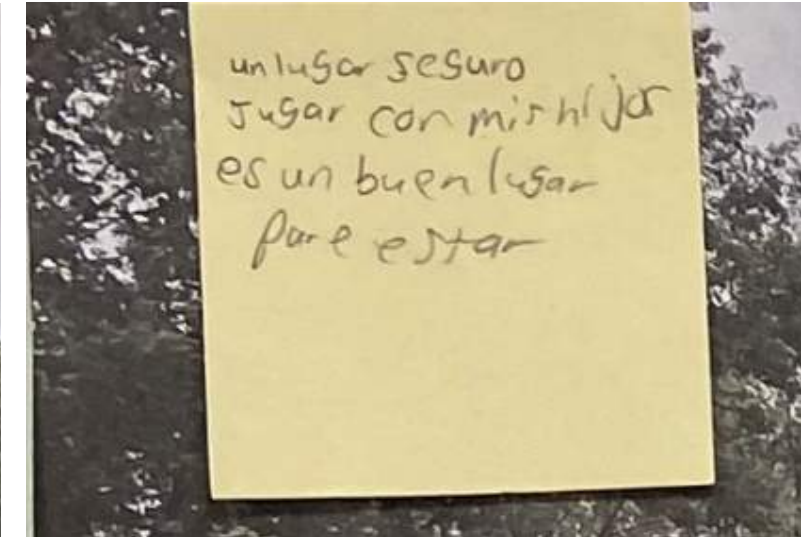 un lugar seguro
Jugar con mis hijos
es un buen lugar
para estar